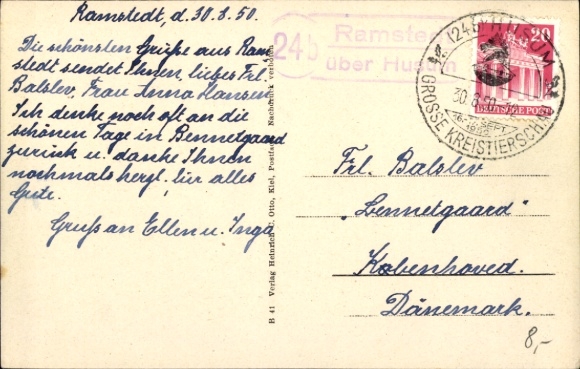 Ramstedt, d. 30.8.50.
Die schönsten Grüße aus Ram
stedt sendet Ihnen, liebes Frl.
Balslev, Frau Anna Hansen
Ich denke noch oft an die
schönen Tage in Bennetgaard
zurück u. danke Ihnen
nochmals herzl. für alles
Gute.
Gruß an Ellen u. Inga
24b
Ramstedt
über Husum
(24) HUSUM
30.8.50
SEPT.
GROSSE KREISTIERSCHAU
20
DEUTSCHE POST
B 41 Verlag Heinrich C. Otto, Kiel, Postfach Nachdruck verboten
Frl. Balslev
„Bennetgaard"
Kobenhoved.
Dänemark.
8,-